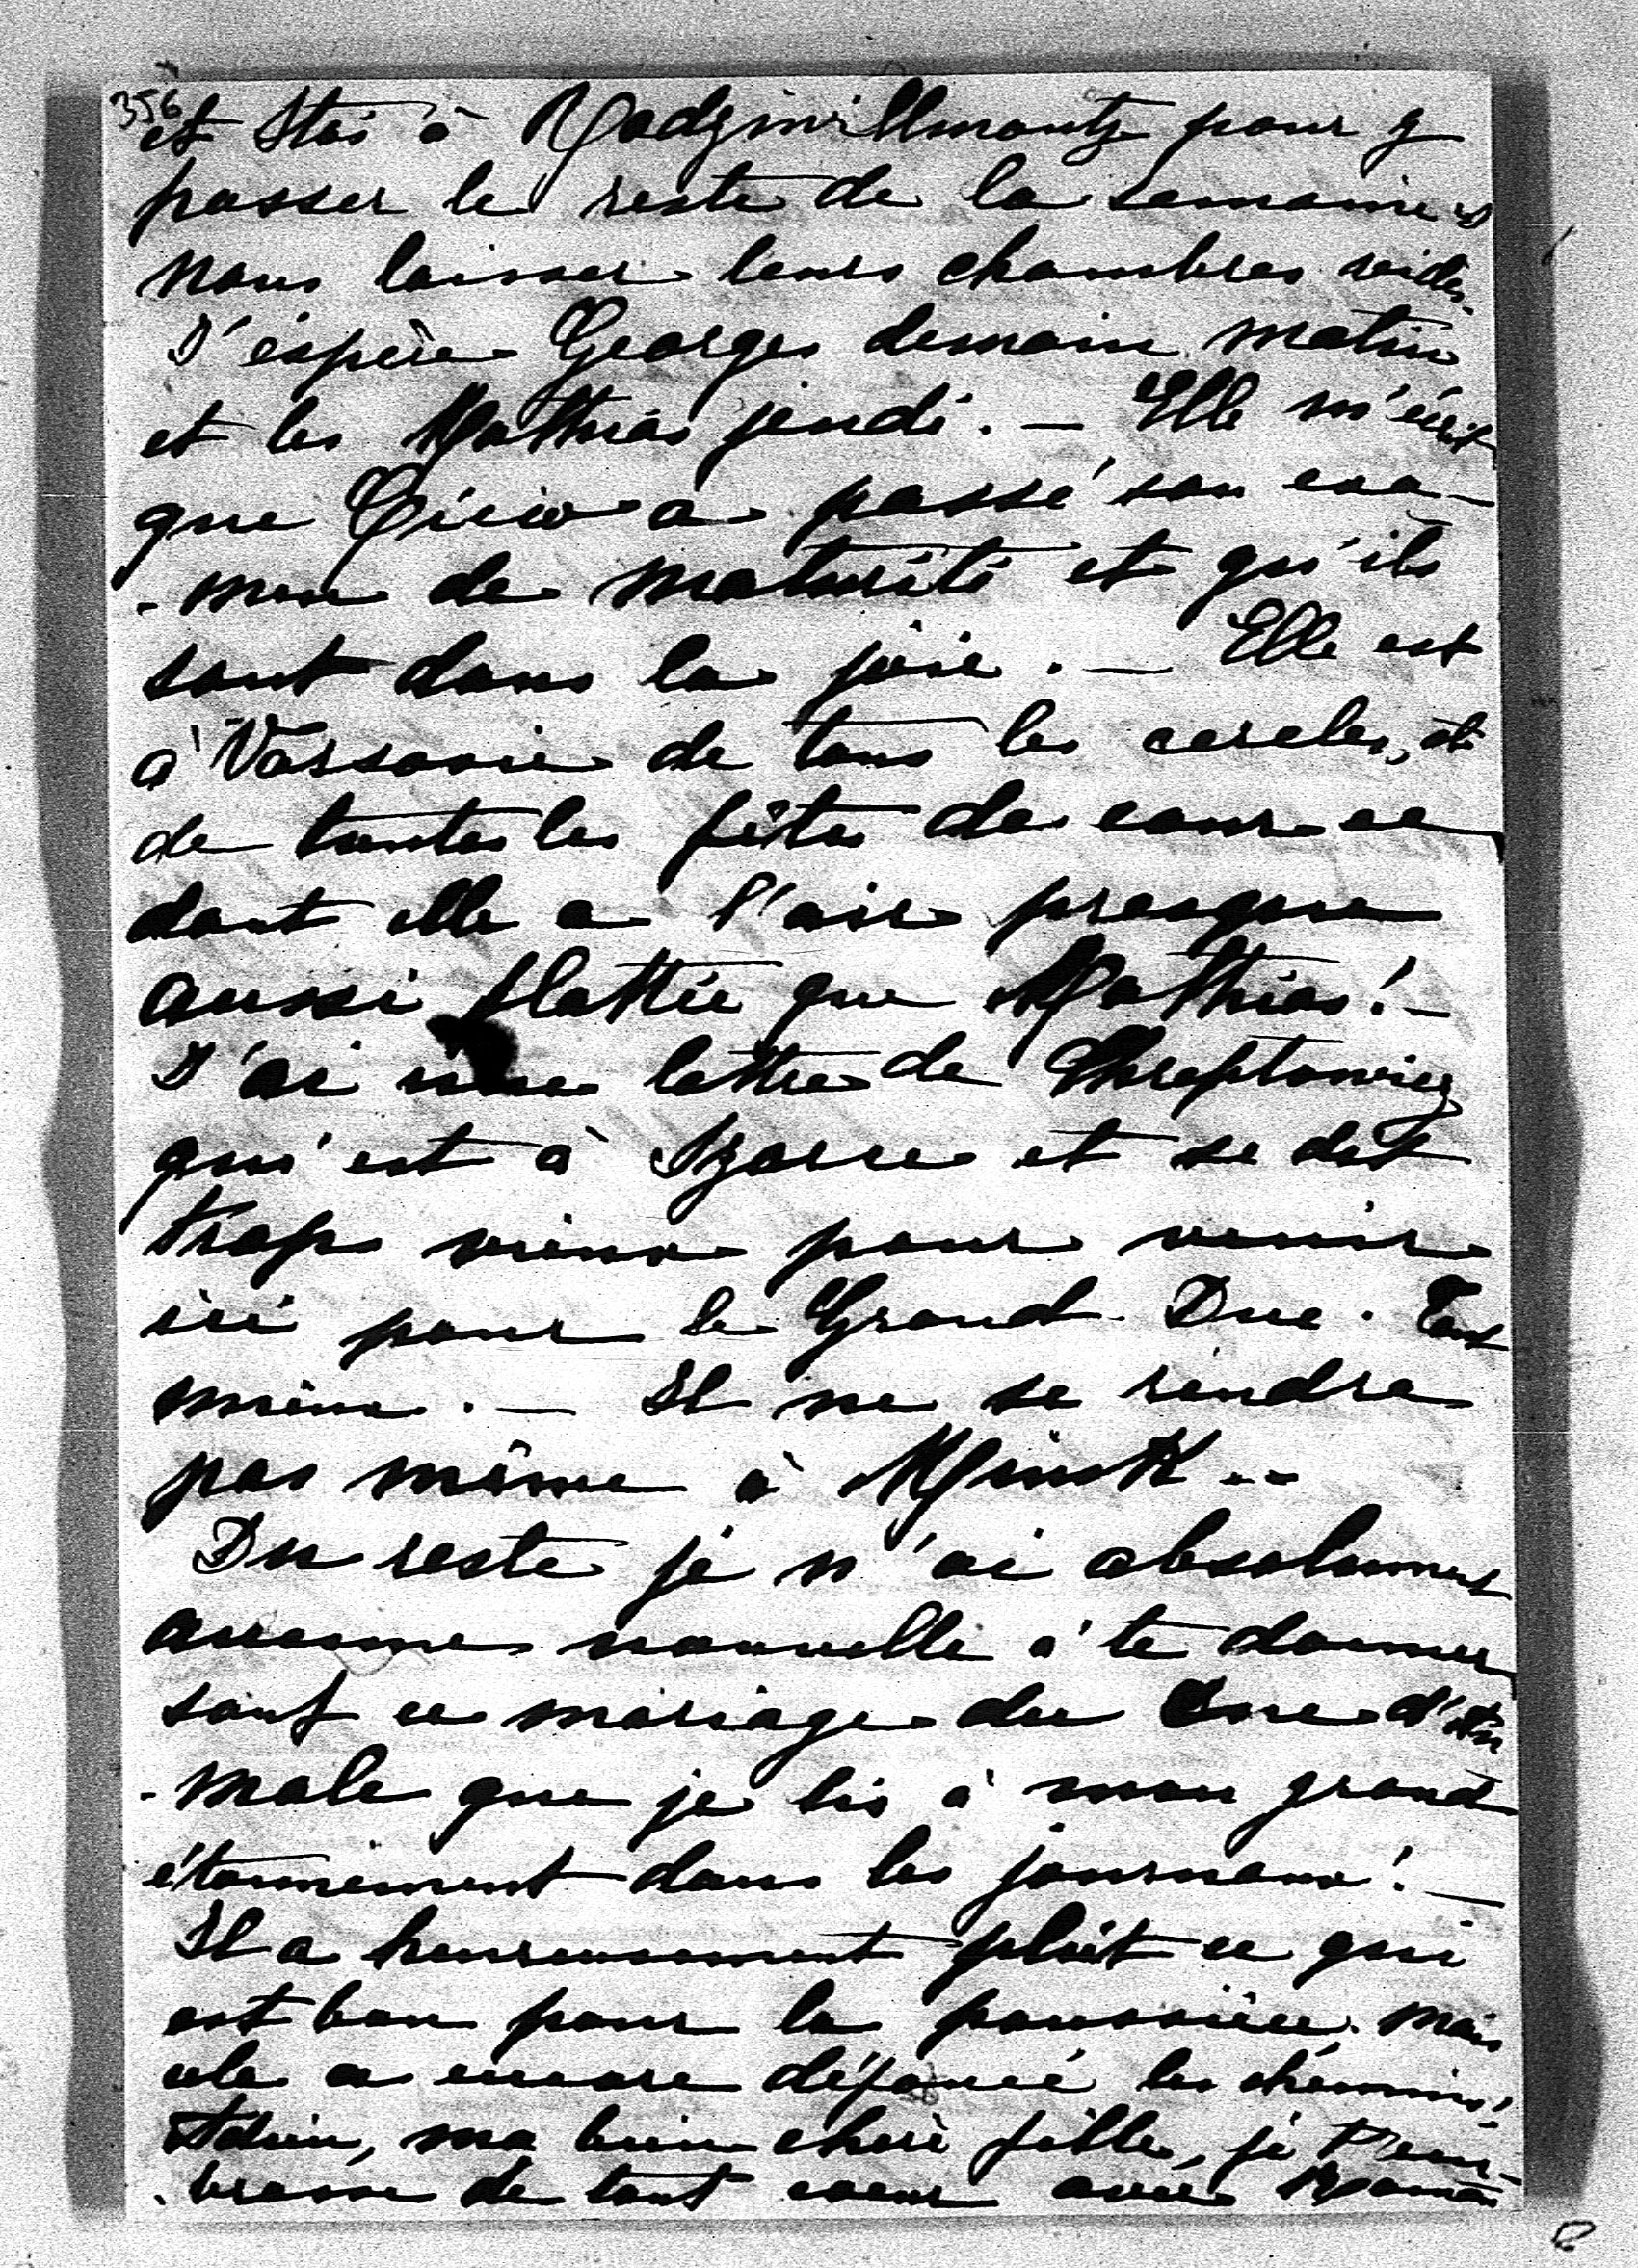 356
et Stas à Radziwillmontz pour y
passer le reste de la semaine et
nous laisser leurs chambres vides.
J'éspère Georges demain matin
et les Mathias jeudi. — Elle m'écrit
que Cicio a passé son exa-
-men de maturité et qu'ils
sont dans la joie. — Elle est
à Varsovie de tous les cercles, et
de toutes les fêtes de cour ce
dont elle a l'air presque
aussi flattée que Mathias! —
J'ai une lettre de Chreptowicz
qui est à Szorce et se dit
trop vieux pour venir
ici pour le Grand-Duc. Tant
mieux. — Il ne se rendra
pas même à Minsk --
Du reste je n'ai absolument
aucune nouvelle à te donner
sauf ce mariage du Duc d'Au
-male que je lis à mon grand
étonnement dans les journaux! —
Il a heureusement plut ce qui
est bon pour la poussière. mais
cela a encore défoncé les chémins!
Adieu, ma bien cherè fille, je t'em-
-brasse de tout coeur avec Maman